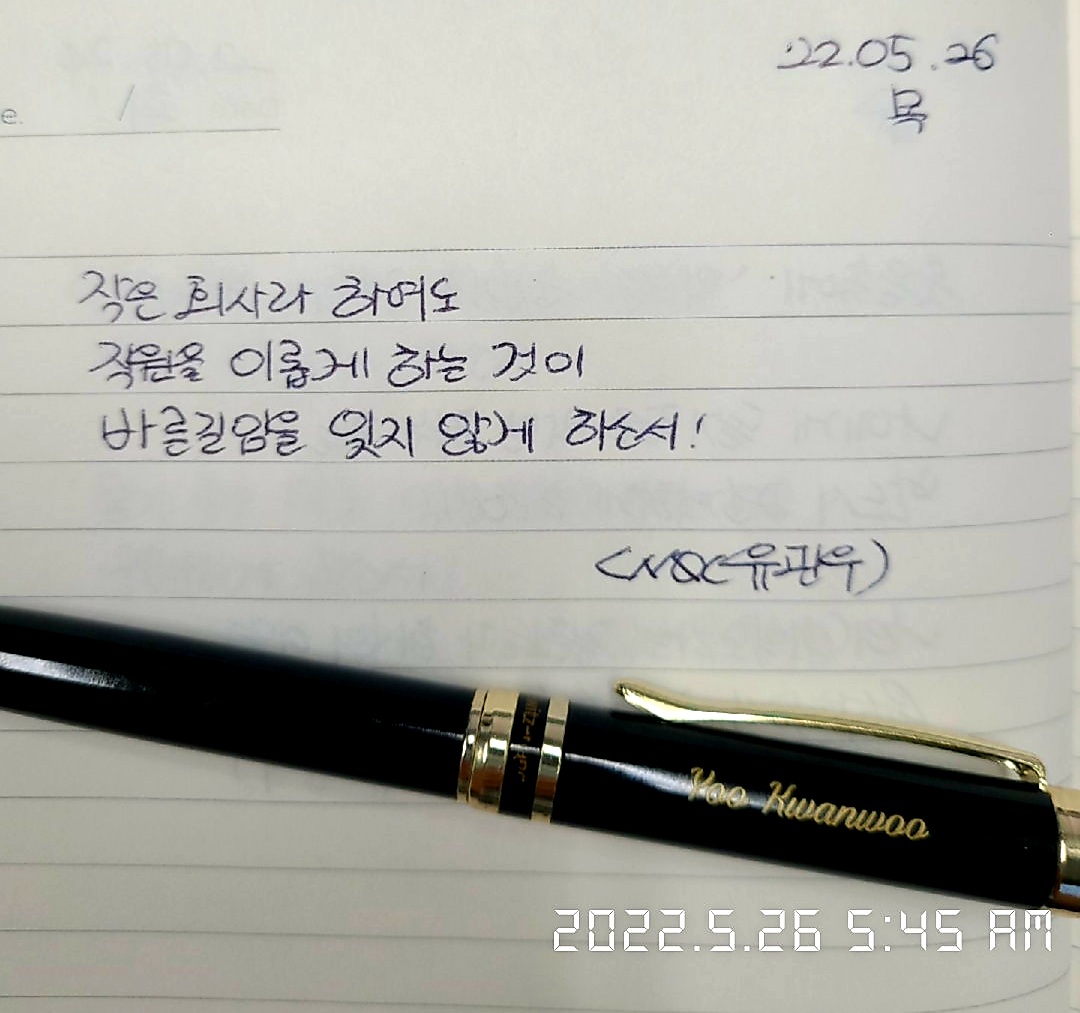 e.
'22.05.26
목
작은 회사라 하여도
직원을 이롭게 하는 것이
바른길임을 잊지 않게 하소서!
(유관우)
Yoo Kwanwoo
2022.5.26 5:45 AM